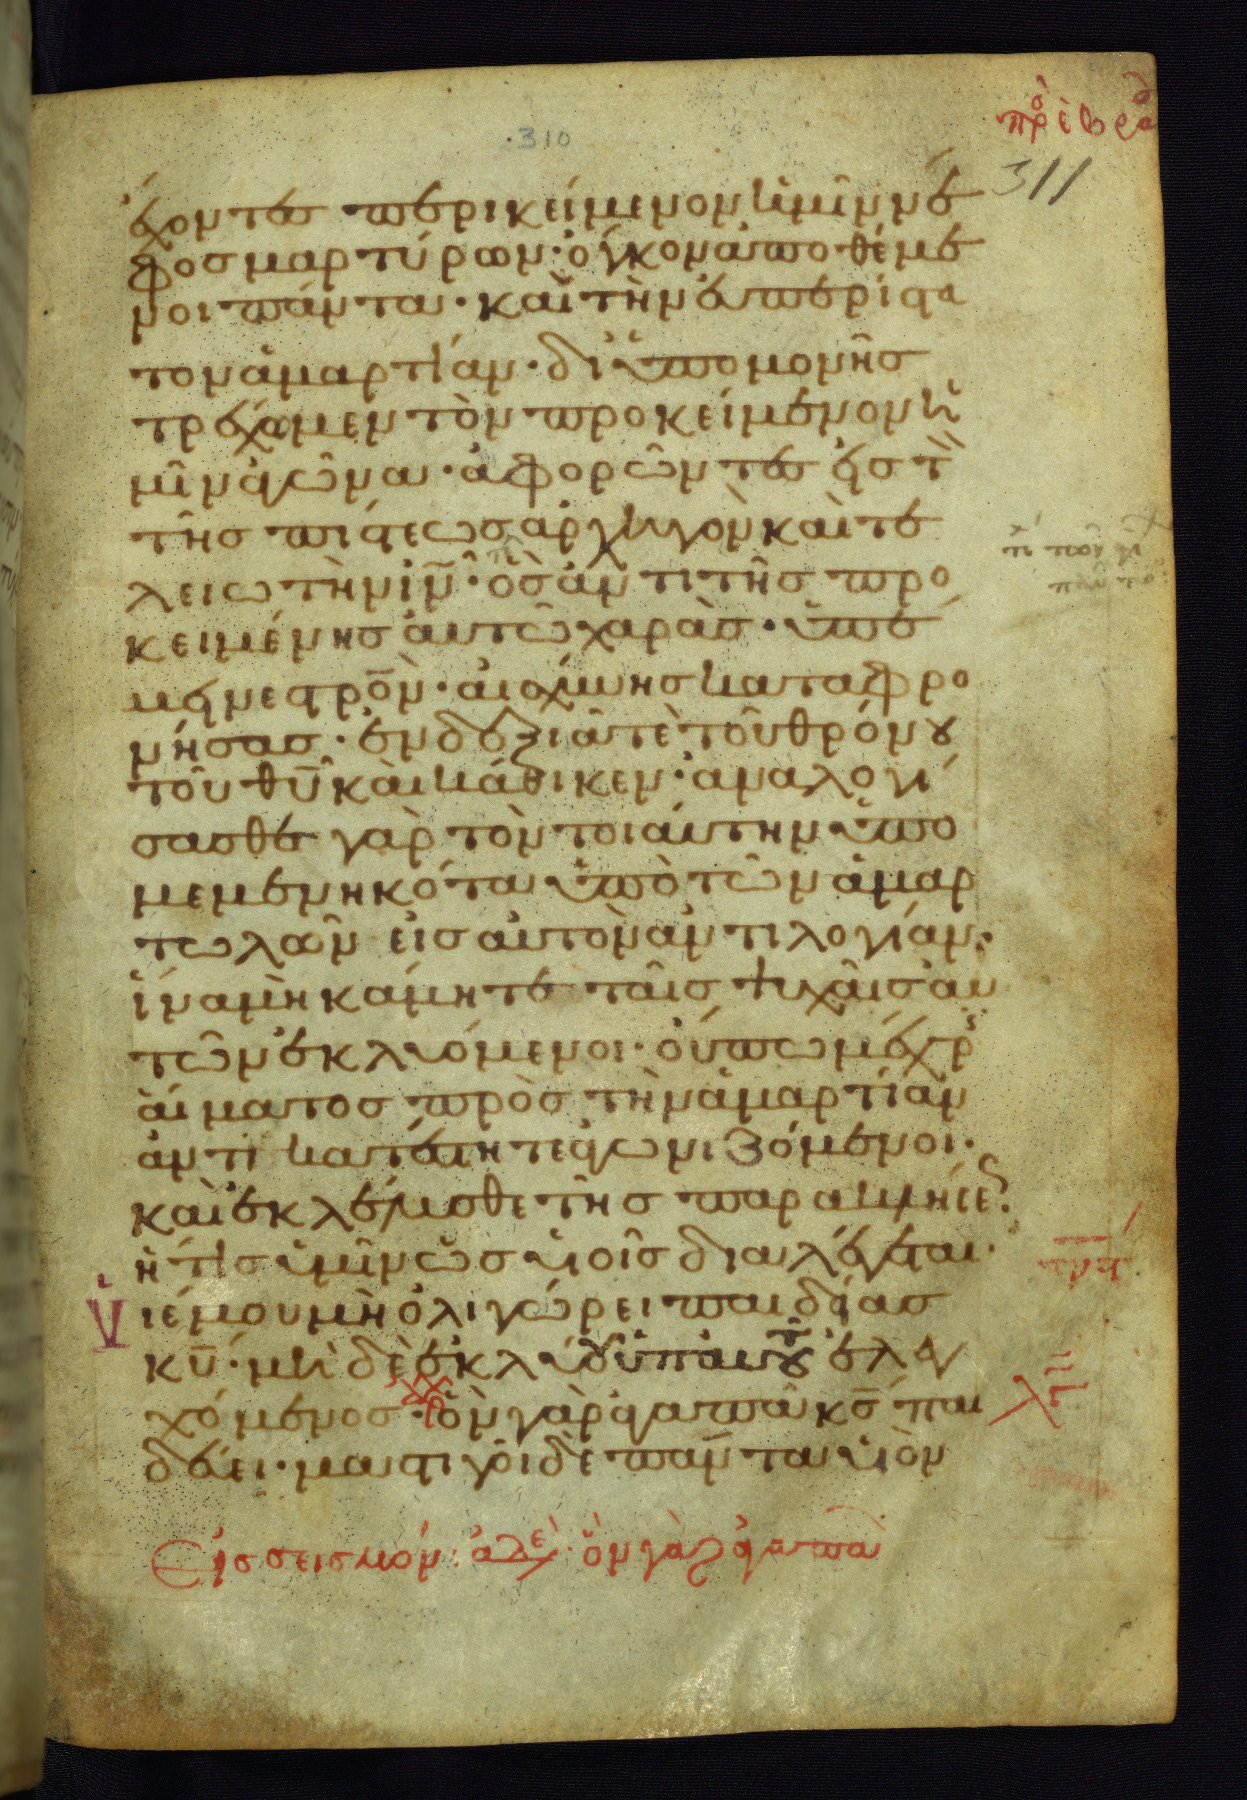 ·310
πρ ἑβρ
311
ἔχοντες περικείμενον ἡμῖν νέ
φος μαρτύρων· ὄγκον ἀποθέμε
νοι πάντα· καὶ τὴν εὐπερίστα
τον ἁμαρτίαν· δι' ὑπομονῆς
τρέχωμεν τὸν προκείμενον ἡ
μῖν ἀγῶνα· ἀφορῶντες εἰς τὸν
τῆς πίστεως ἀρχηγὸν καὶ τε
λειωτὴν ἰν̅· ὃς ἀντὶ τῆς προ
κειμένης αὐτῶ χαρᾶς· ὑπέ
μεινε στρον̅· αἰσχύνης καταφρο
νήσας· ἐν δεξιᾶ τὲ τοῦ θρόνου
τοῦ θυ̅ κάθικεν· ἀναλογί
σασθε γὰρ τὸν τοιαύτην ὑπο
μεμενηκότα ὑπὸ τῶν ἁμαρ
τωλῶν εἰς αὐτὸν ἀντιλογίαν·
ἵνα μὴ κάμητε ταῖς ψυχαῖς αὐ
τῶν ἐκλυόμενοι· οὔπω μέχρι
αἵματος πρὸς τὴν ἁμαρτίαν
ἀντικατέστητε ἀγωνιζόμενοι·
καὶ ἐκλέλησθε τῆς παρακλήσεως·
ἥτις ὑμῖν ὡς υἱοῖς διαλέγεται·
ὑιέ μου μὴ ὀλιγώρει παιδείας
κυ̅· μὴ δὲ ἐκλύου ὑπ' αὐτοῦ ἐλεγ
χόμενος· ὃν γὰρ ἀγαπᾶ κς̅ παι
δεύει· μαστιγοῖ δὲ πάντα υἱὸν
Εἰς σεισμόν· ἀδε· ὃν γὰρ ἀγαπᾶ